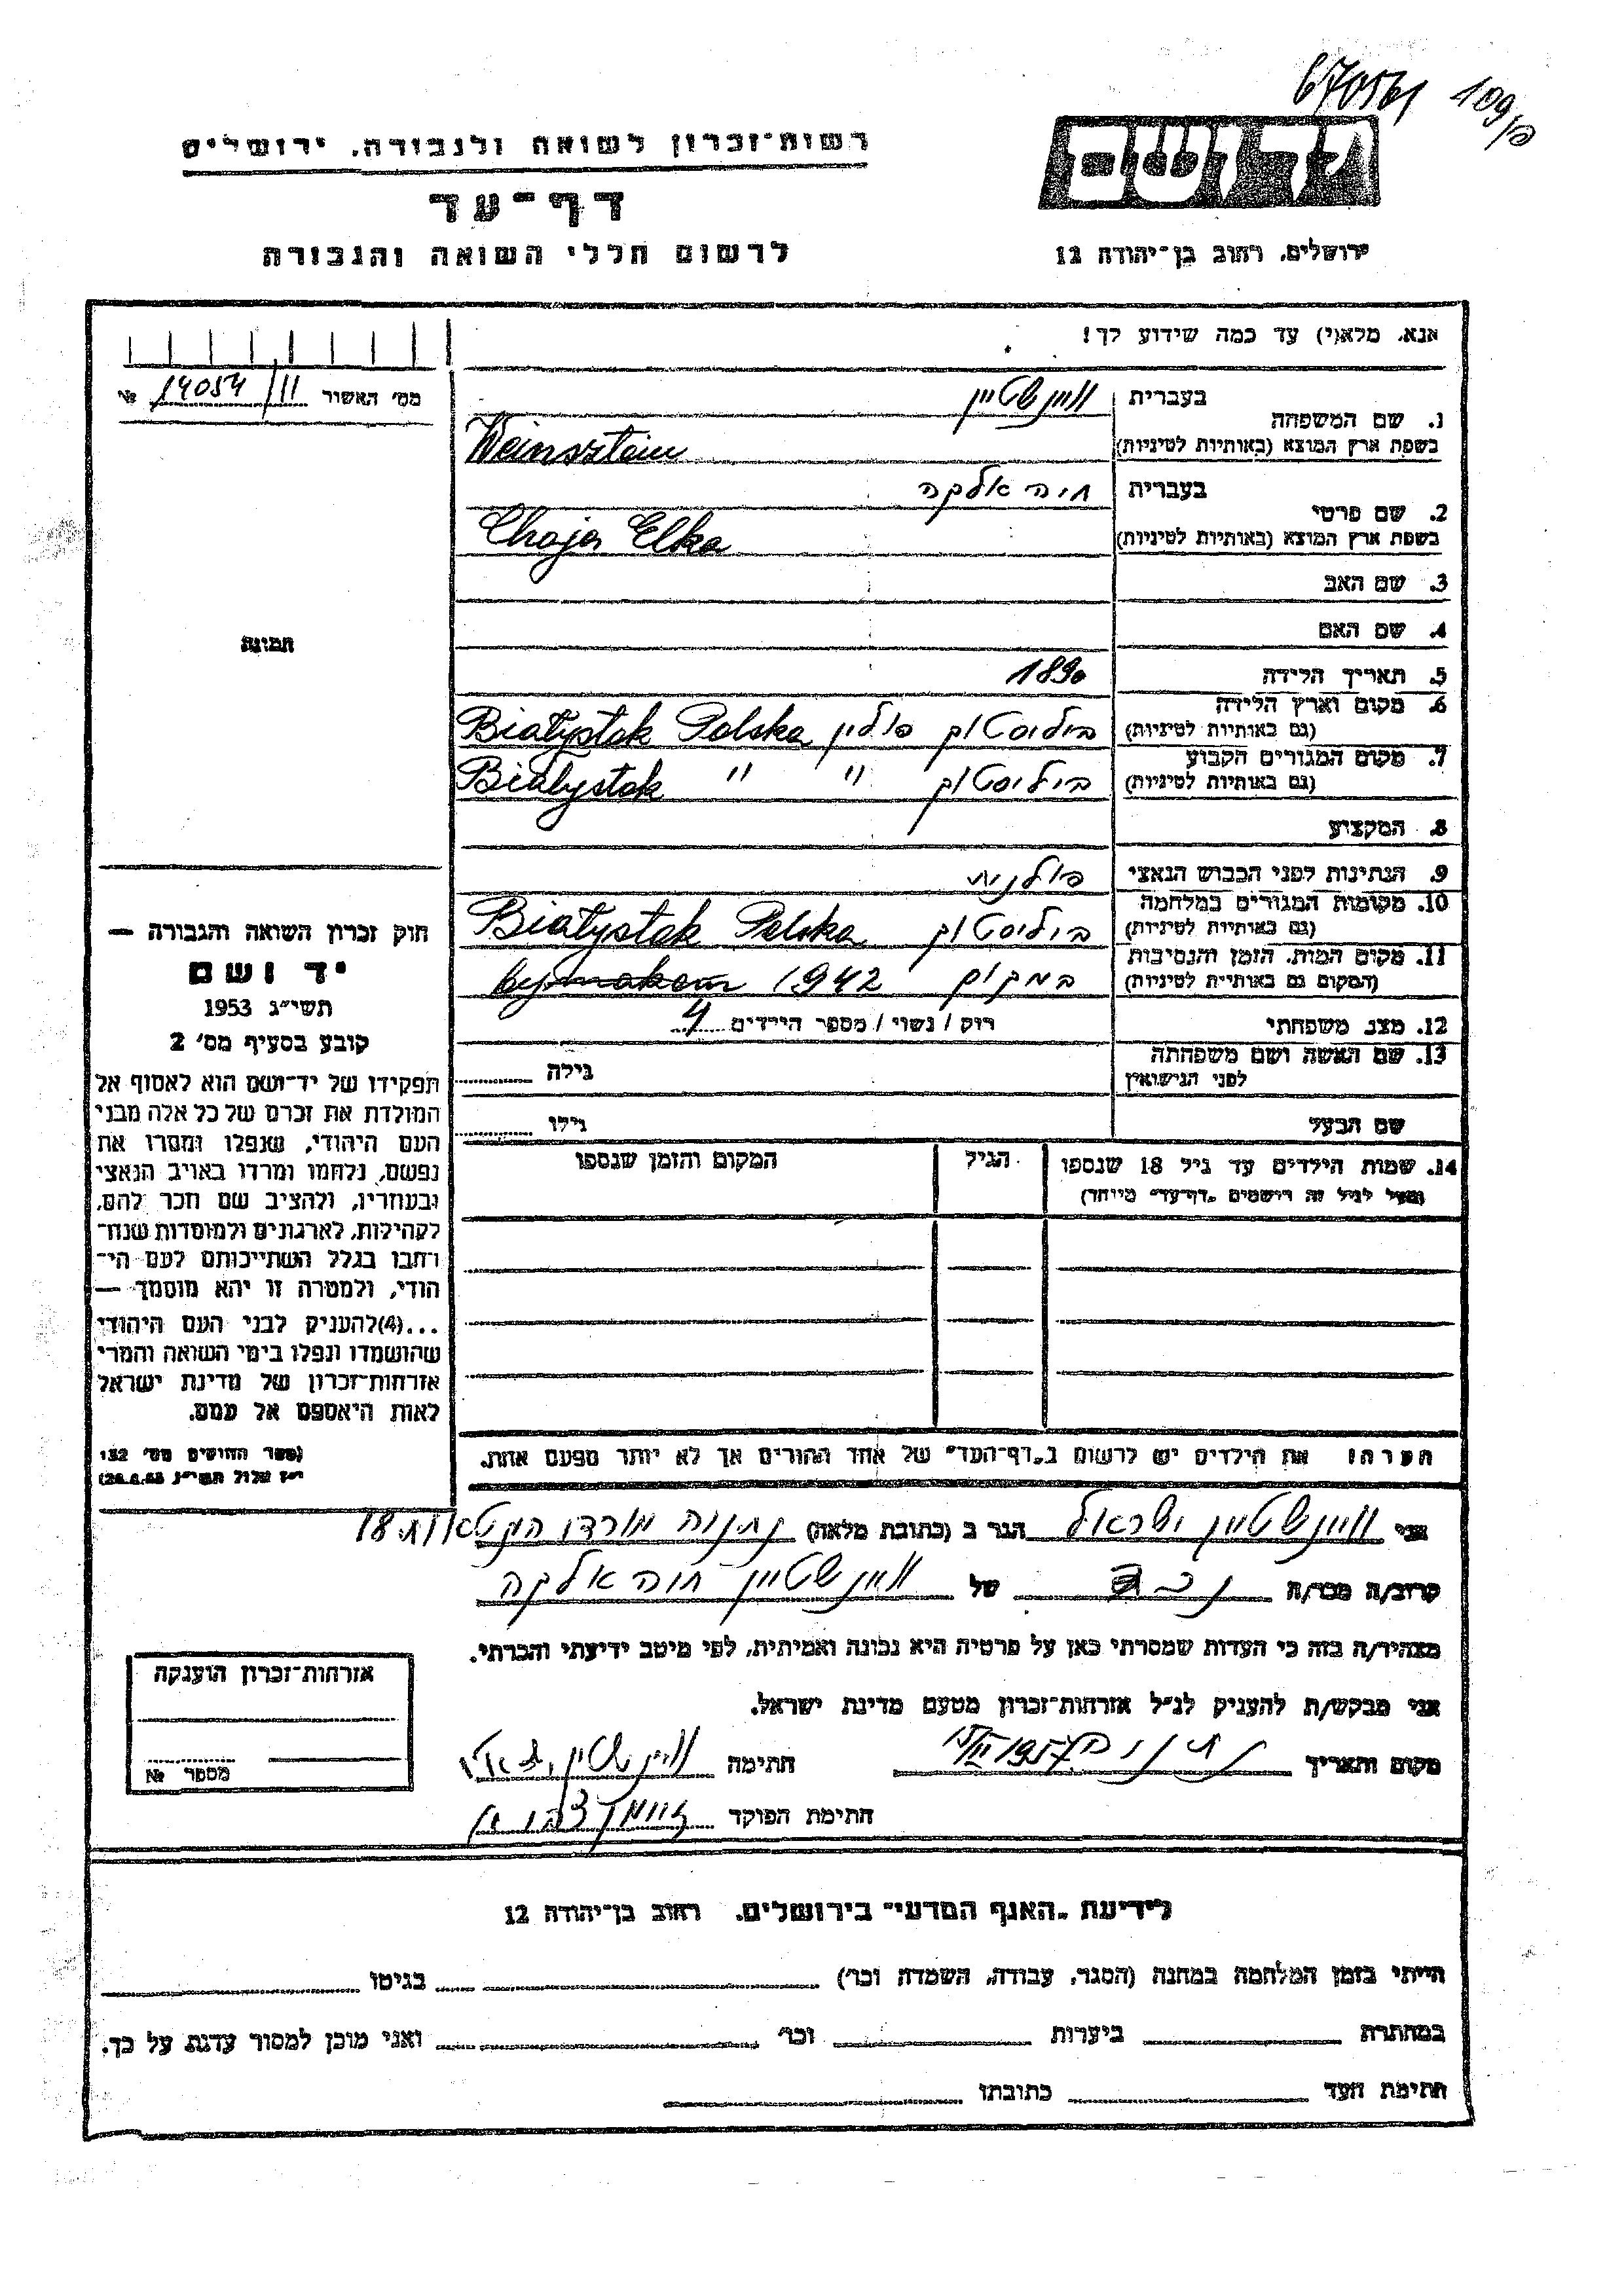 670561 109/פ
רשות-זכרון לשואה ולגבורה, ירושלים
דף-עד
לרשום חללי השואה והגבורה
יד ושם
ירושלים, רחוב בן-יהודה 12
אנא, מלא(י) עד כמה שידוע לך!
מס' האשור 14054/II №
1. שם המשפחה
בעברית ויינשטיין
בשפת ארץ המוצא (באותיות לטיניות) Weinsztein
2. שם פרטי
בעברית חיה אלקה
בשפת ארץ המוצא (באותיות לטיניות) Chaja Elka
3. שם האב
4. שם האם
תמונה
5. תאריך הלידה 1890
6. מקום וארץ הלידה (גם באותיות לטיניות) ביליסטוק פולין Białystok Polska
7. מקום המגורים הקבוע (גם באותיות לטיניות) ביליסטוק " " Białystok
8. המקצוע
9. הנתינות לפני הכבוש הנאצי פולנית
10. מקומות המגורים במלחמה (גם באותיות לטיניות) ביליסטוק Białystok Polska
11. מקום המות, הזמן והנסיבות (המקום גם באותיות לטיניות) במקום 1942
12. מצב משפחתי רווק / נשוי / מספר הילדים 4
13. שם האשה ושם משפחתה לפני הנישואין גילה
שם הבעל גילו
14. שמות הילדים עד גיל 18 שנספו
(מעל לגיל זה רושמים "דף-עד" מיוחד)
הגיל
המקום והזמן שנספו
הערה: את הילדים יש לרשום ב"דף-העד" של אחד ההורים אך לא יותר מפעם אחת.
חוק זכרון השואה והגבורה —
יד ושם
תשי"ג 1953
קובע בסעיף מס' 2
תפקידו של יד-ושם הוא לאסוף אל
המולדת את זכרם של כל אלה מבני
העם היהודי, שנפלו ומסרו את
נפשם, נלחמו ומרדו באויב הנאצי
ובעוזריו, ולהציב שם וזכר להם,
לקהילות, לארגונים ולמוסדות שנח-
רבו בגלל השתייכותם לעם הי-
הודי, ולמטרה זו יהא מוסמך —
...(4) להעניק לבני העם היהודי
שהושמדו ונפלו בימי השואה והמרי
אזרחות-זכרון של מדינת ישראל
לאות היאספם אל עמם.
(ספר החוקים מס' 132
י"ז אלול תשי"ג 28.8.53)
אני ויינשטיין ישראל הגר ב (כתובת מלאה) נתניה מורדי הגטאות 18
קרוב/ה מכר/ה נכד של ויינשטיין חיה אלקה
מצהיר/ה בזה כי העדות שמסרתי כאן על פרטיה היא נכונה ואמיתית, לפי מיטב ידיעתי והכרתי.
אני מבקש/ת להעניק לנ"ל אזרחות-זכרון מטעם מדינת ישראל.
מקום ותאריך נתניה 1957 חתימה ויינשטיין ישראל
חתימת הפוקד
אזרחות-זכרון הוענקה
מספר №
לידיעת "האגף המדעי" בירושלים, רחוב בן-יהודה 12
הייתי בזמן המלחמה במחנה (הסגר, עבודה, השמדה וכו') בגיטו
במחתרת ביערות וכו' ואני מוכן למסור עדות על כך.
חתימת העד כתובתו